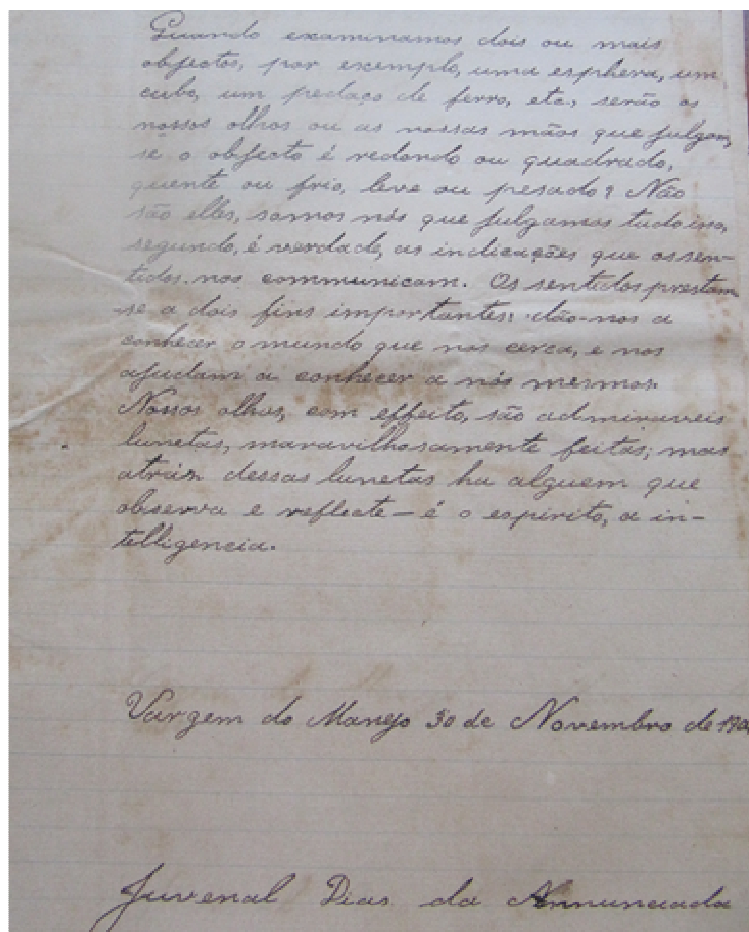 Quando examinamos dois ou mais
objectos, por exemplo, uma esphera, um
cubo, um pedaço de ferro, etc., serão os
nossos olhos ou as nossas mãos que julgam,
se o objecto é redondo ou quadrado,
quente ou frio, leve ou pesado? Não
são elles, somos nós que julgamos tudo isso,
segundo, é verdade, as indicações que os sen-
tidos nos communicam. Os sentidos prestam
-se a dois fins importantes: dão-nos a
conhecer o mundo que nos cerca, e nos
ajudam a conhecer a nós mesmos.
Nossos olhos, com effeito, são admiraveis
lunetas, maravilhosamente feitas; mas
atráz dessas lunetas ha alguem que
observa e reflecte — é o espirito, a in-
telligencia.
Vargem do Manejo 30 de Novembro de 190
Juvenal Dias da Annunciada